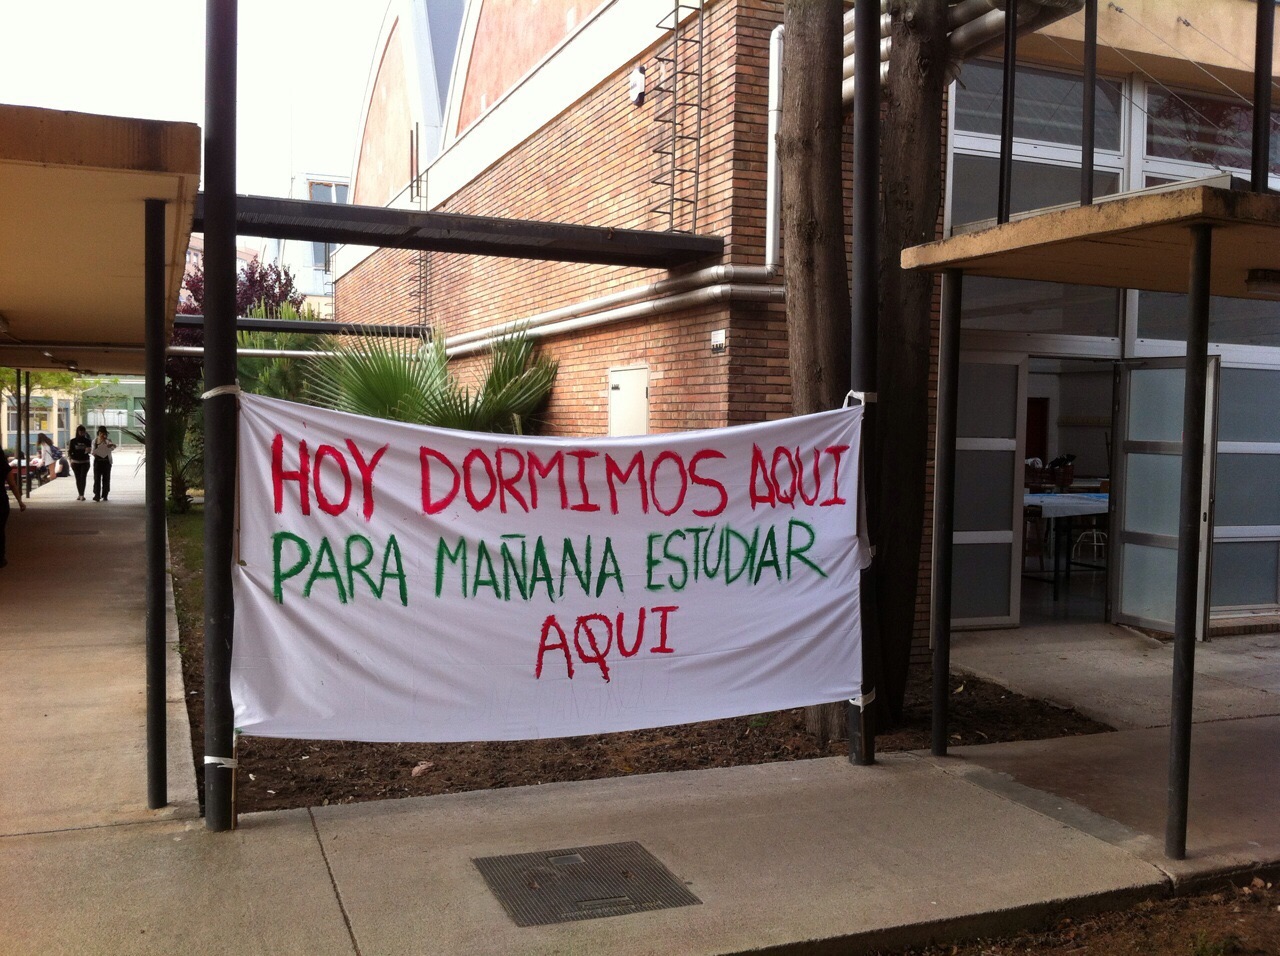 HOY DORMIMOS AQUI
PARA MAÑANA ESTUDIAR
AQUI